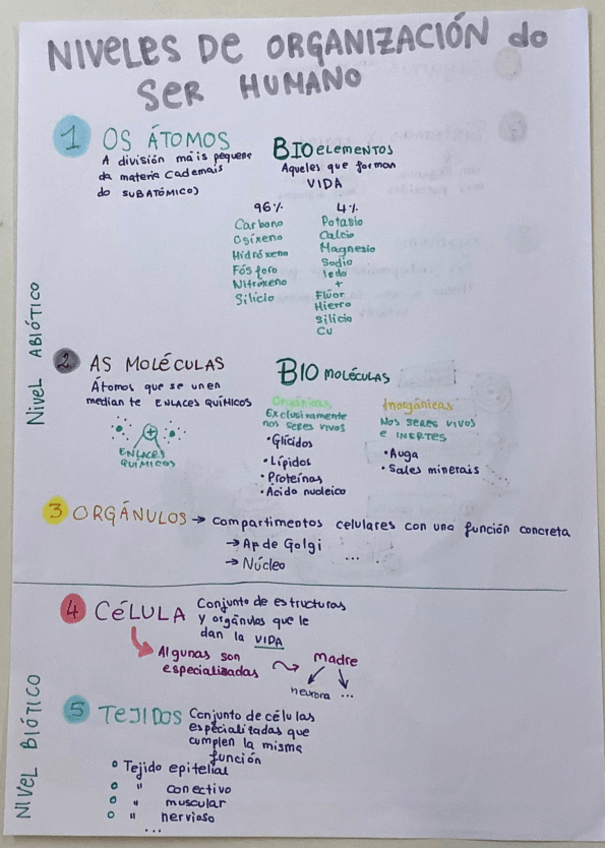 NIVELES DE ORGANIZACIÓN do
SER HUMANO
Nivel ABIÓTICO
1 OS ÁTOMOS
A división máis pequena
da materia (ademais
do SUBATÓMICO)
BIOelementos
Aqueles que forman
VIDA
96%
Carbono
Osíxeno
Hidróxeno
Fósforo
Nitróxeno
Silicio
4%
Potasio
Calcio
Magnesio
Sodio
Iodo
+
Flúor
Hierro
Silicio
Cu
2 AS MOLÉCULAS
Átomos que se unen
mediante ENLACES QUÍMICOS
ENLACES
QUÍMICOS
BIO MOLÉCULAS
Orgánicas
Exclusivamente
nos seres vivos
• Glícidos
• Lípidos
• Proteínas
• Ácido nucleico
Inorgánicas
Nos seres vivos
e INERTES
• Auga
• Sales minerais
...
3 ORGÁNULOS → Compartimentos celulares con una función concreta
→ Ap de Golgi
→ Núcleo ...
NIVEL BIÓTICO
4 CÉLULA
Conjunto de estructuras
y orgánulos que le
dan la VIDA
Algunas son
especializadas
madre
neurona ...
5 TEJIDOS
Conjunto de células
especialitadas que
cumplen la misma
función
o Tejido epitelial
o " conectivo
o " muscular
o " nervioso
...